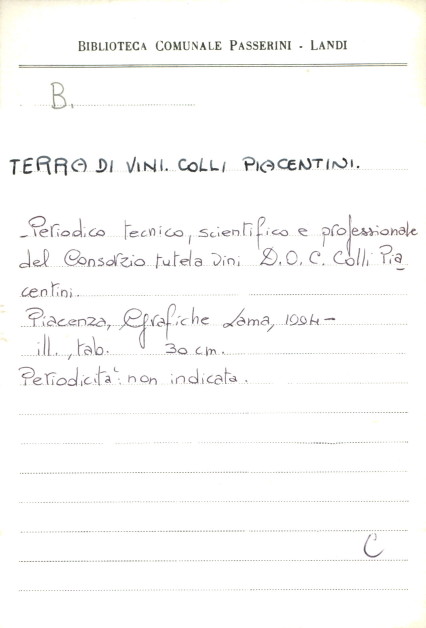 BIBLIOTECA COMUNALE PASSERINI - LANDI
B.
TERRA DI VINI. COLLI PIACENTINI.
-Periodico tecnico, scientifico e professionale
del Consorzio tutela vini D.O.C. Colli Pia
centini.
Piacenza, Grafiche Lama, 1994-
ill., tab. 30 cm.
Periodicità: non indicata.
C